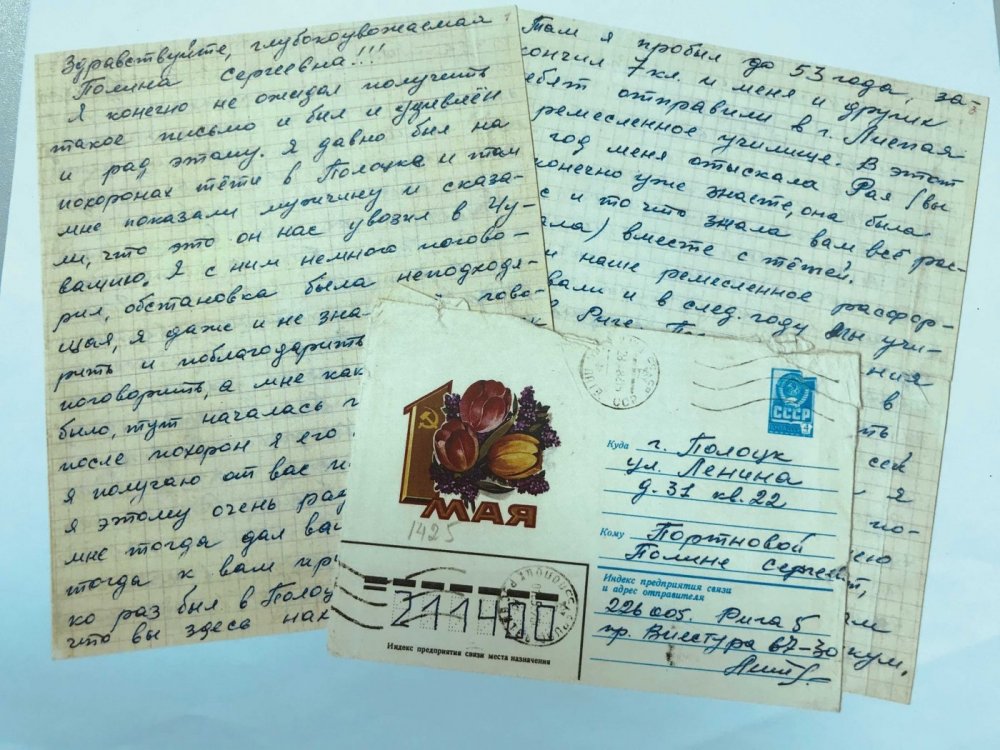 Здравствуйте, глубокоуважаемая
Полина Сергеевна!!!
Я конечно не ожидал получить
такое письмо и был и удивлён
и рад этому. Я давно был на
похоронах тёти в Полоцке и там
мне показали мужчину и сказа-
ли, что это он нас увозил в Чу-
вашию. Я с ним немного погово-
рил, обстановка была неподходя-
щая, я даже и не зна- гово-
рить и поблагодарить
поговорить, а мне как
было, тут началась
после похорон я его
я получаю от вас
я этому очень рад
мне тогда дал ва
тогда к вам пр
ко раз был в Полоц
что вы здесь нах
Там я пробыл до 53 года, за-
кончил 7 кл. и меня и других
ебят отправили в г. Лиепая
ремесленное училище. В этот
год меня отыскала Рая (вы
конечно уже знаете, она была
с и то что знала вам всё рас-
ала) вместе с тётей.
и наше ремесленное расфор-
вали и в след. году мы учи-
Риге.
ния
в
ть
сей
я
по-
ею
т,
м
кум,
1 МАЯ
1425
СССР
4
Куда г. Полоцк
ул. Ленина
д. 31 кв. 22
Кому Портновой
Полине Сергеев
Индекс предприятия связи
и адрес отправителя
226005. Рига 5
пр. Виестура 67-30
211400
Индекс предприятия связи места назначения